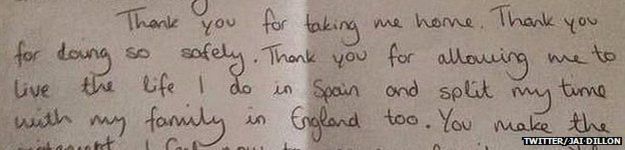 Thank you for taking me home. Thank you
for doing so safely. Thank you for allowing me to
live the life I do in Spain and split my time
with my family in England too. You make the
I
to
TWITTER/JAI DILLON